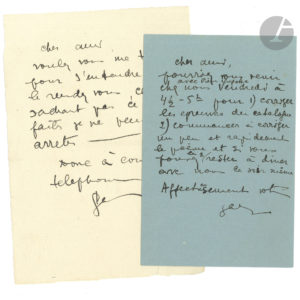 cher ami
voulez vous me t
pour s'entendre
le rendez vous c
sachant pas c
faits je ne peu
arreter
donc à con
telephon
cher ami,
pourriez vous venir
chez nous vendredi à
4½ - 5h pour 1) corriger
les épreuves du catalogue
2) commencer à corriger
un peu et
le poème et si vous
pouvez rester à diner
avec nous le soir même
Affectueusement votre